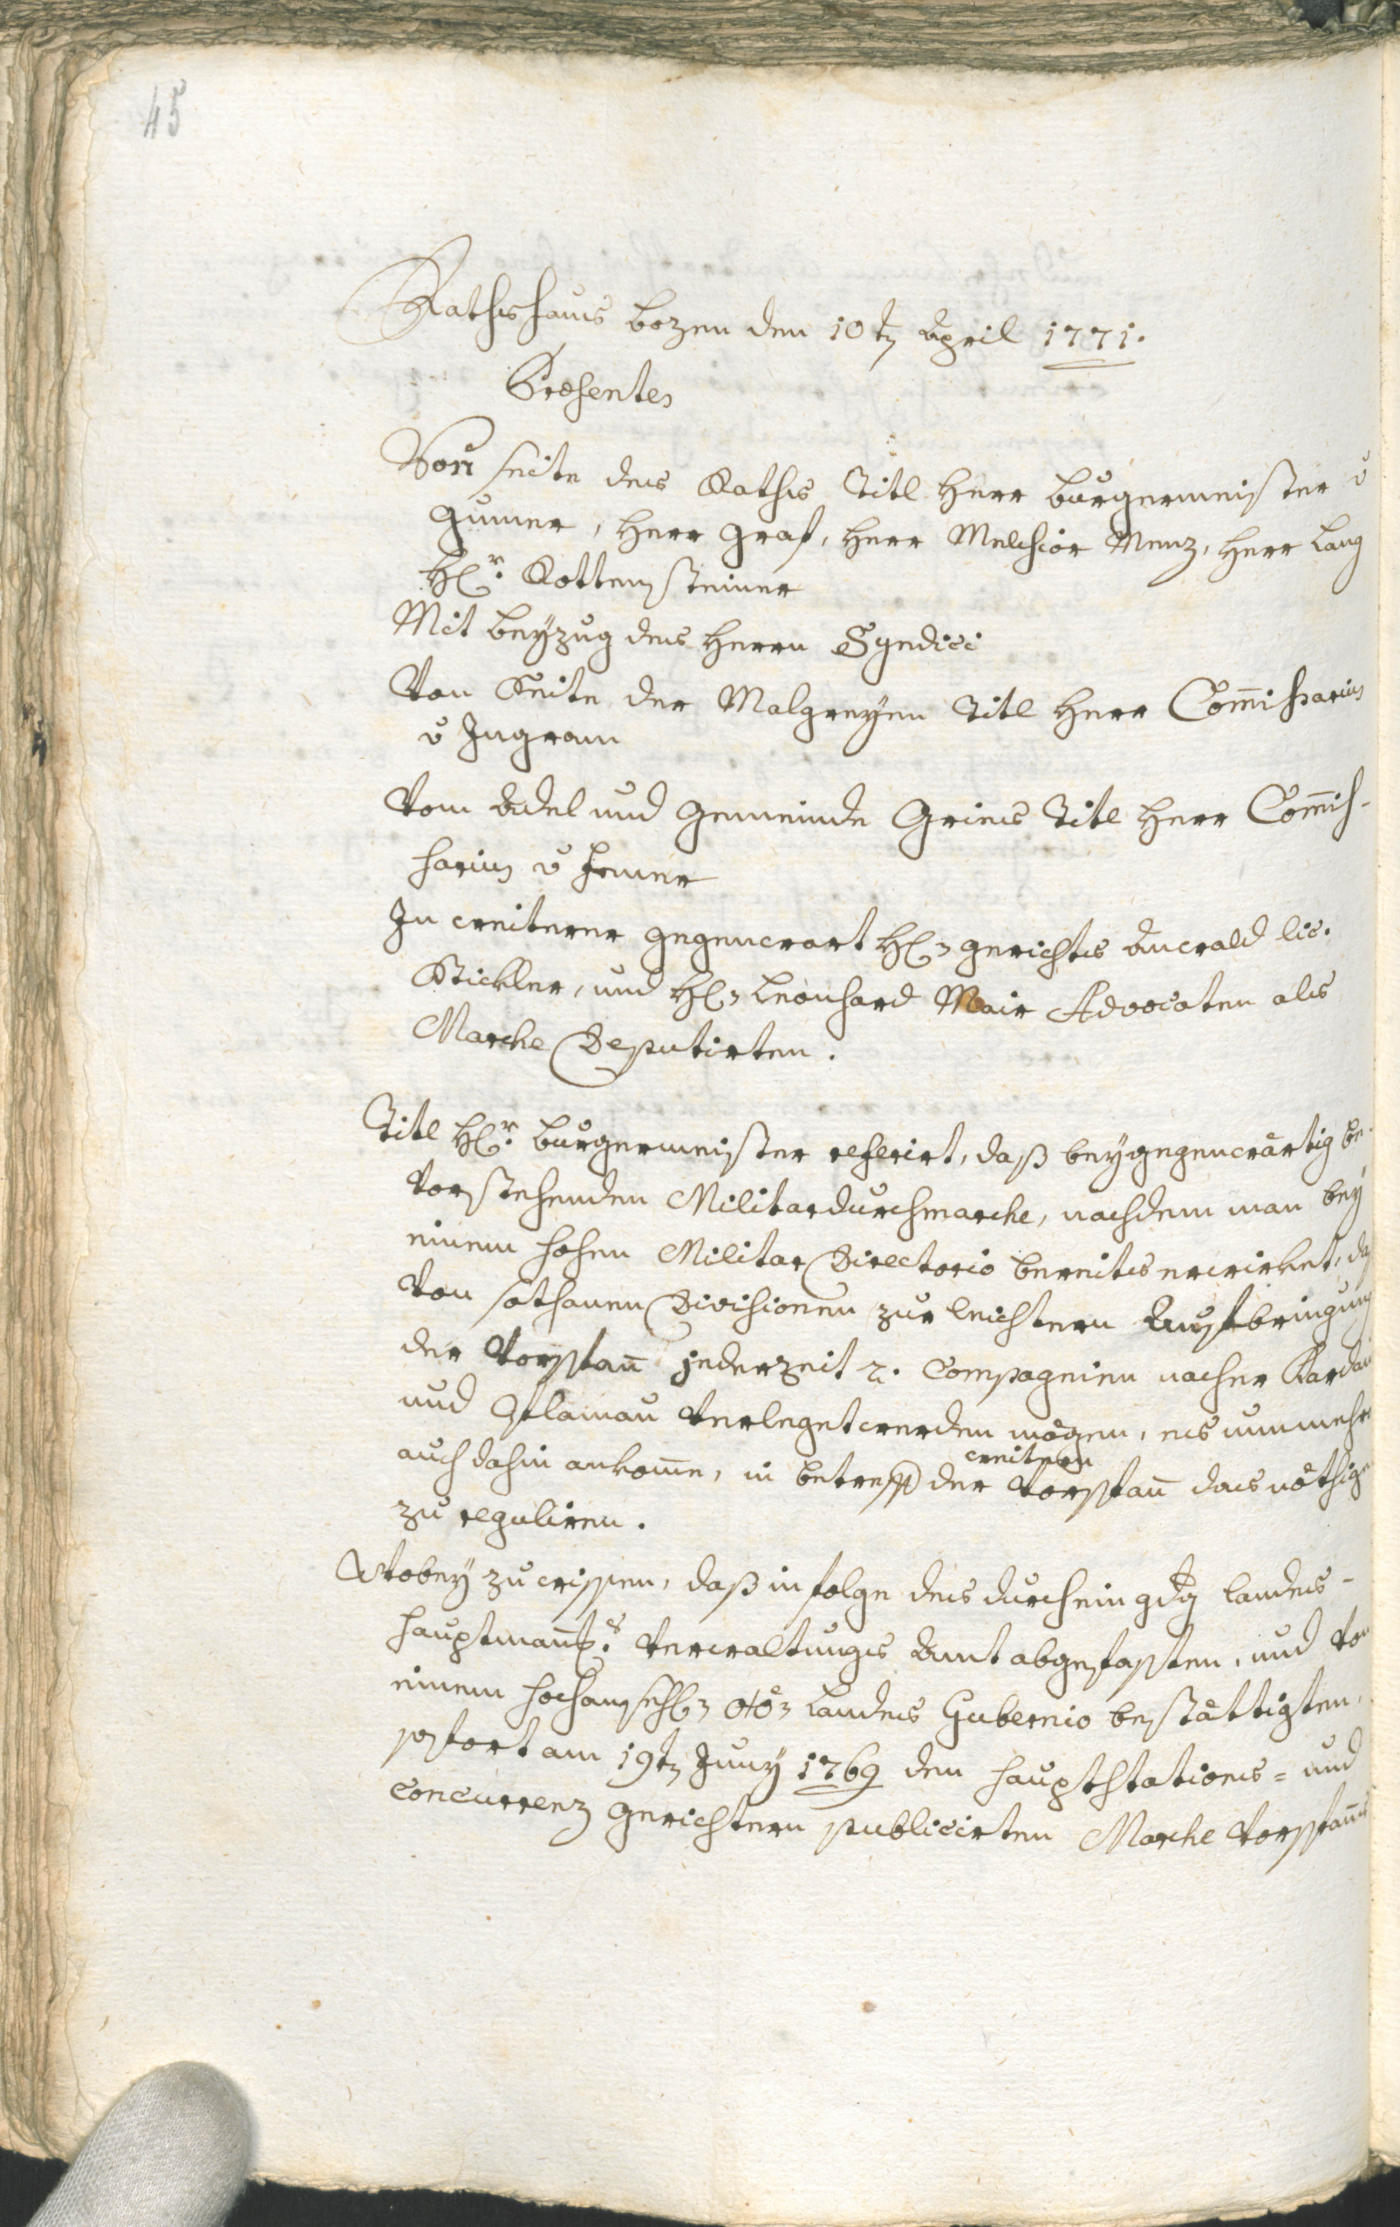 45
Rathshaus bozen den 10t. April 1771.
Præsentes
Von seite des Raths Titl Herr burgermeister v
Gumer, Herr Graf, Herr Melchior Menz, Herr Lang
H:r Rottensteiner
Mit beyzug des Herrn Syndici
Von Seite der Malgreyen Titl Herr Com̄issarius
v Ingram
Vom Adel und Gemeinde Gries Titl Herr Com̄is-
sarius v Hener
In weiterer gegenwart H: gerichts Anwald lic.
Stickler, und H: Leonhard Mair Advocaten als
Marche Deputirten.
Titl H:r burgermeister referirt, daß bey gegenwärtig be-
vorstehenden Militardurchmarche, nachdem man bey
einem hohen Militar Directorio bereits erwirket, daß
von sothanen Divisionen zur leichtern Aufbringung
der Vorspan̄ jederzeit 2. Compagnien nacher Kardau
und Blumau verleget werden mögen, es nunmehro
auch dahin ankom̄e, in betreff der weitern Vorspan̄ das nöthige
zu reguliren.
Wobey zu wissen, daß in folge des durch ein gdg Landes-
hauptman̄: Verwaltungs Amt abgefasten, und von
einem hochansehl: OÖ: Landes Gubernio bestättigten,
sofort am 19t. Juny 1769 den Hauptstations- und
Concurrenz Gerichtern publicirten Marche Vorspan̄s